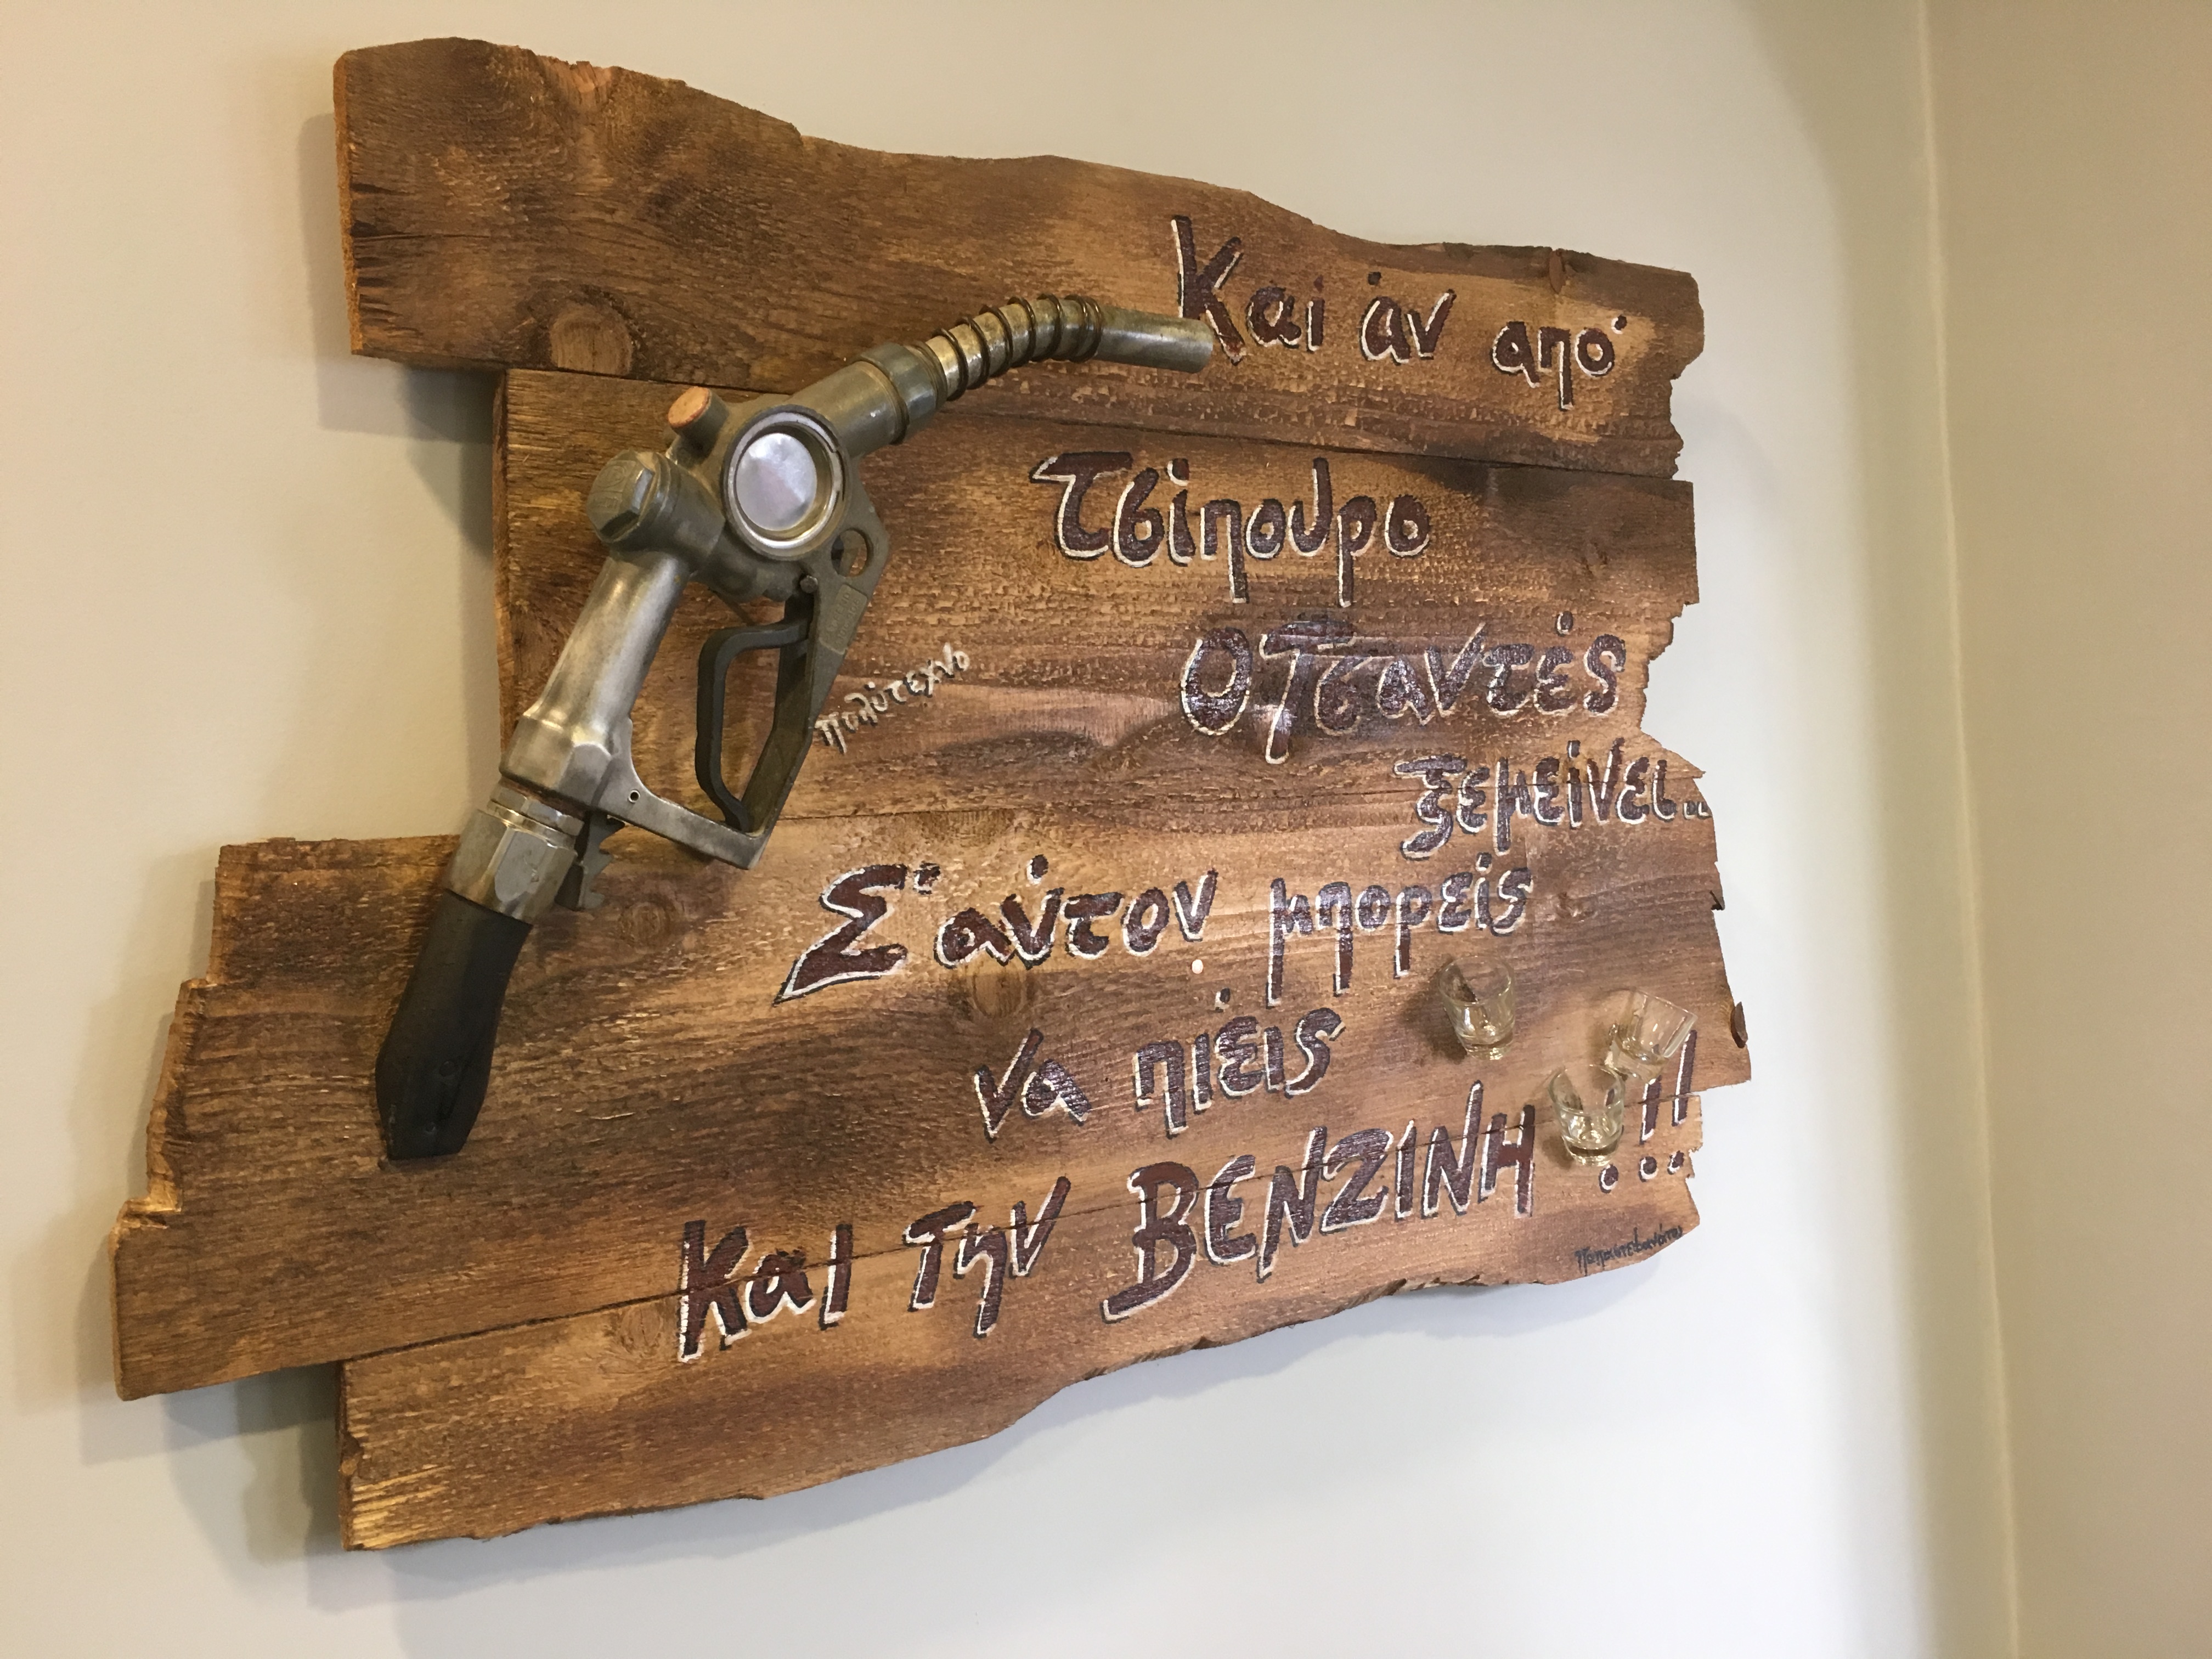 Και άν από
Τσίπουρο
Ο Τσαντές
ξεμείνει...
Σ' αύτον μπορείς
να πιείς
Και την ΒΕΝΖΙΝΗ !!!
Πολύτεχνο